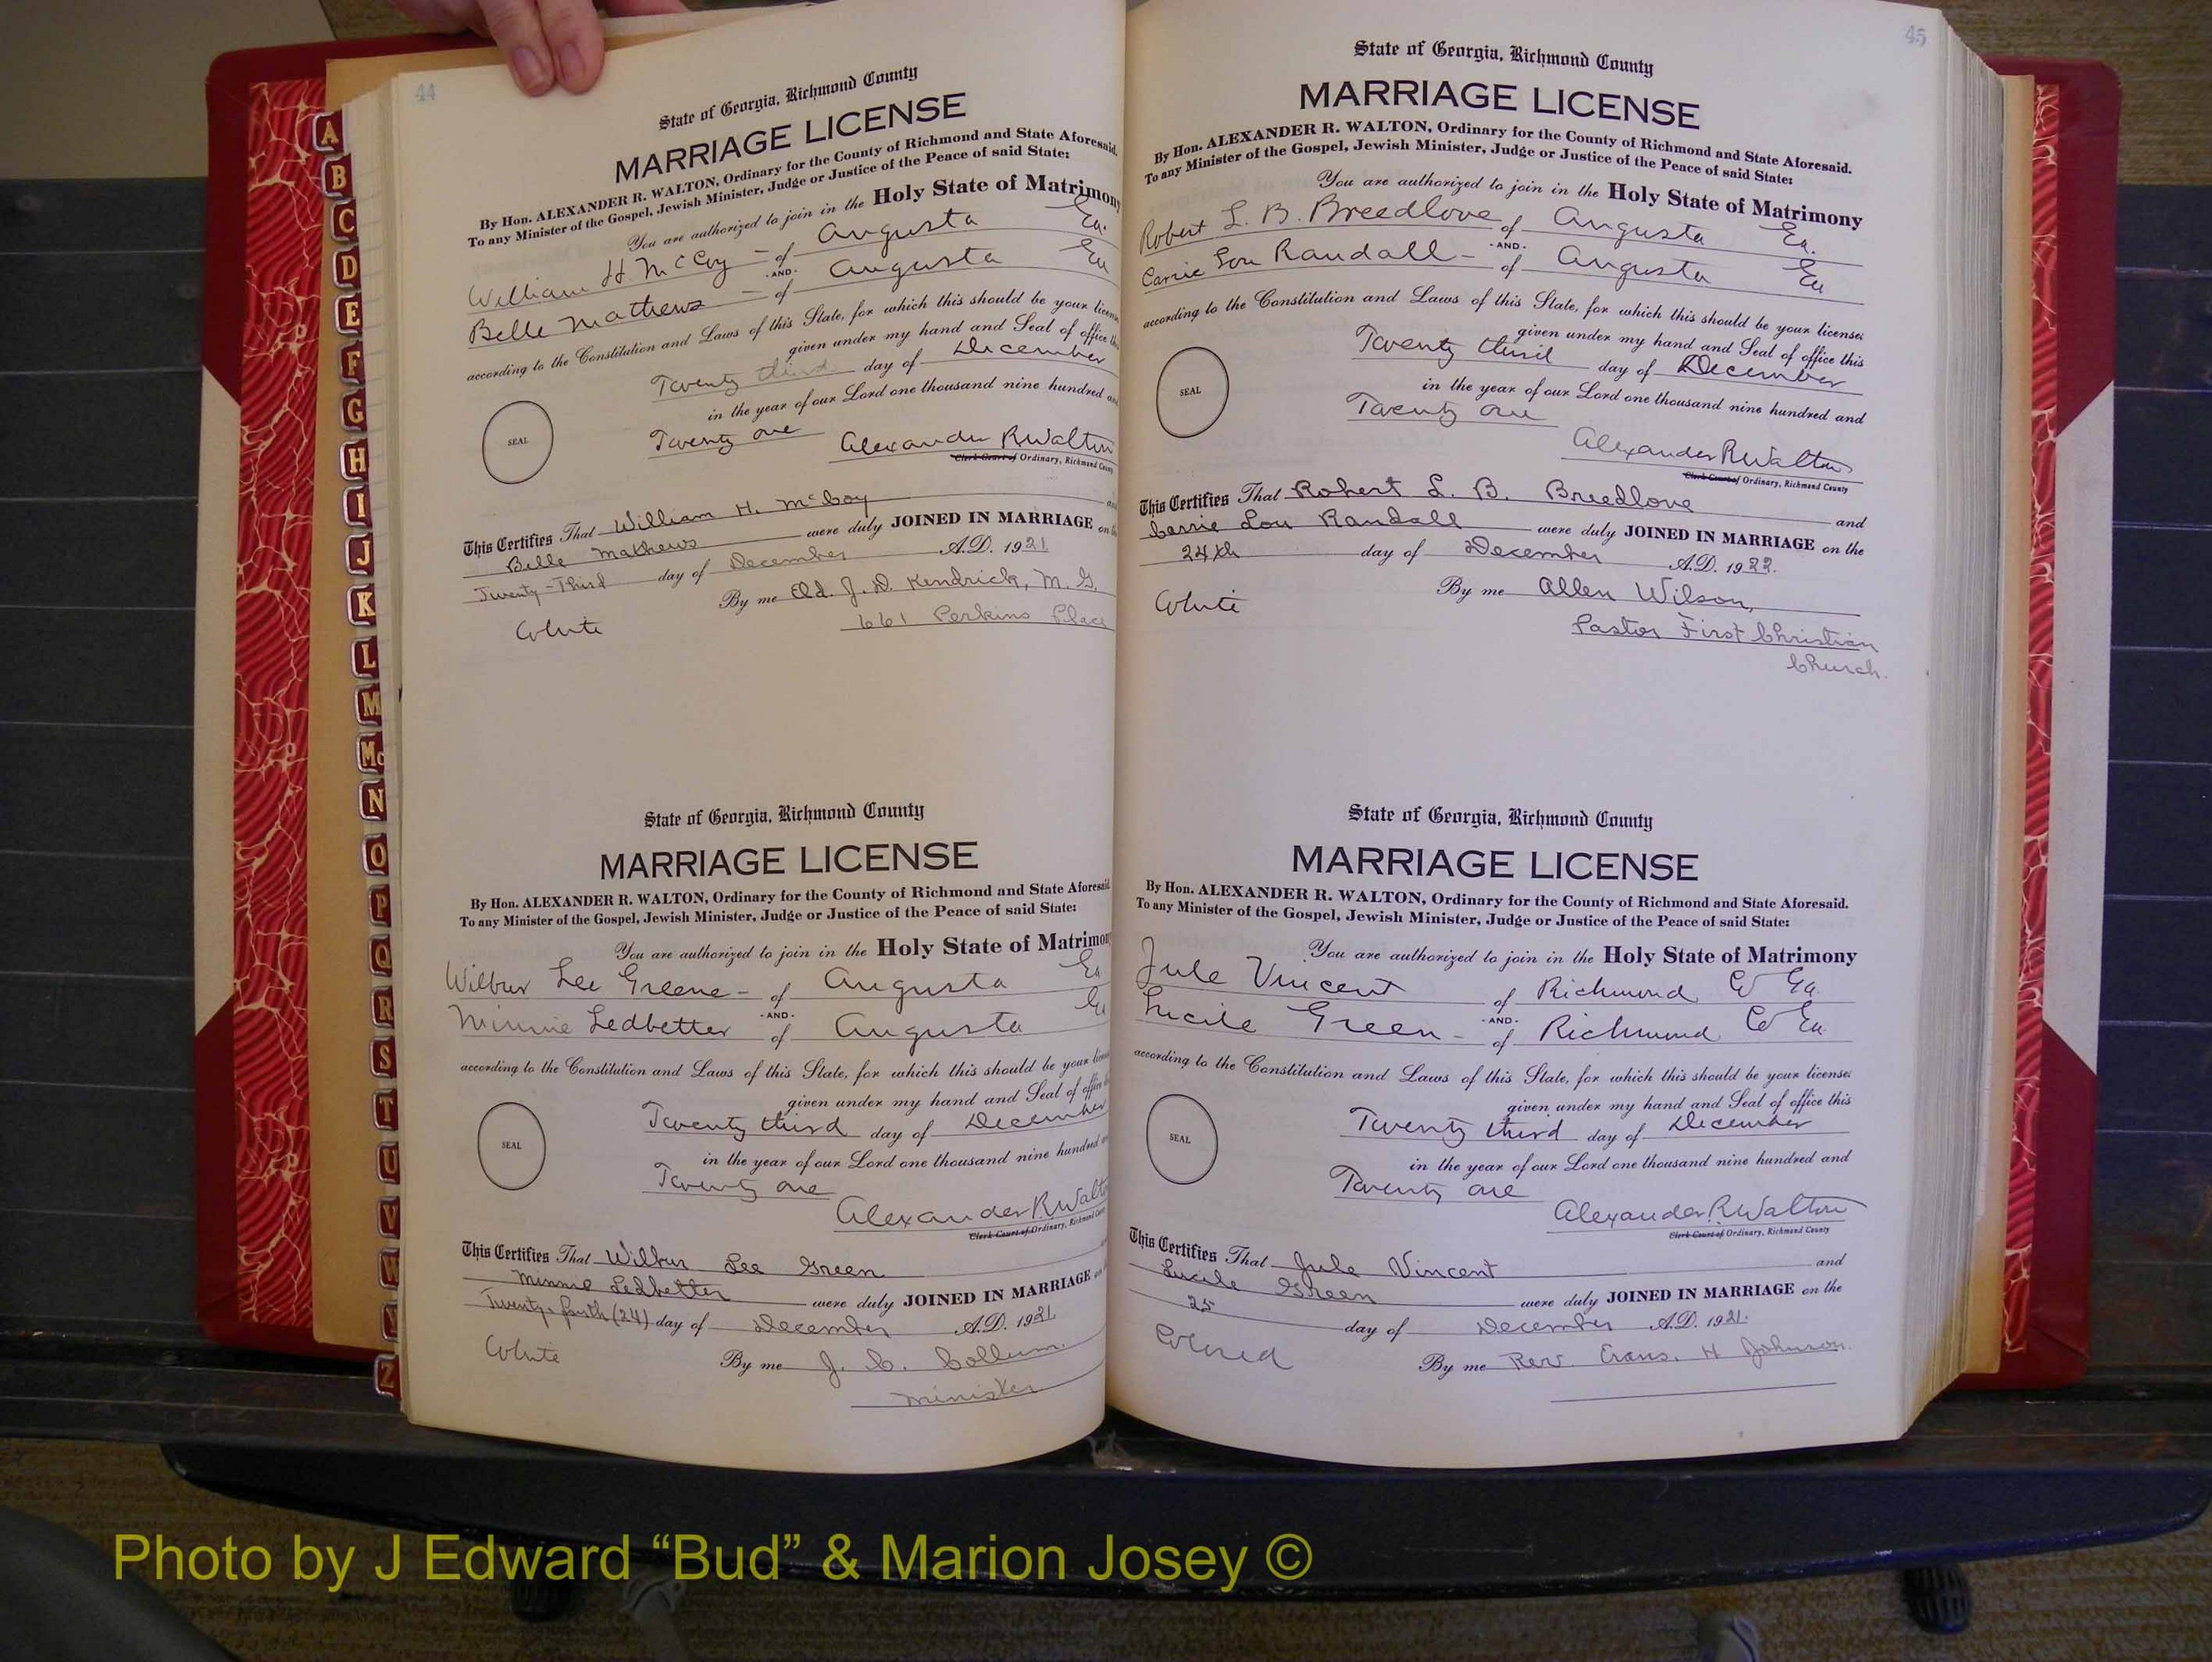 44
State of Georgia, Richmond County
MARRIAGE LICENSE
By Hon. ALEXANDER R. WALTON, Ordinary for the County of Richmond and State Aforesaid.
To any Minister of the Gospel, Jewish Minister, Judge or Justice of the Peace of said State:
You are authorized to join in the Holy State of Matrimony
William H. McCoy - of Augusta Ga.
- AND -
Belle Mathews - of Augusta Ga
according to the Constitution and Laws of this State, for which this should be your license
given under my hand and Seal of office th
Twenty third day of December
in the year of our Lord one thousand nine hundred a
SEAL
Twenty one Alexander R Walton
Clerk Court of Ordinary, Richmond County
This Certifies That William H. McCoy an
Belle Mathews were duly JOINED IN MARRIAGE on th
Twenty-Third day of December A.D. 1921
By me Eld. J. D. Kendrick, M. G.
White 661 Perkins Place
State of Georgia, Richmond County
MARRIAGE LICENSE
By Hon. ALEXANDER R. WALTON, Ordinary for the County of Richmond and State Aforesaid
To any Minister of the Gospel, Jewish Minister, Judge or Justice of the Peace of said State:
You are authorized to join in the Holy State of Matrimon
Wilbur Lee Greene - of Augusta Ga
- AND -
Minnie Ledbetter of Augusta Ga
according to the Constitution and Laws of this State, for which this should be your licens
given under my hand and Seal of office
Twenty third day of December
in the year of our Lord one thousand nine hundred
SEAL
Twenty one Alexander R Walto
Clerk Court of Ordinary, Richmond County
This Certifies That Wilbur Lee Green
Minnie Ledbetter were duly JOINED IN MARRIAGE on
Twenty-fourth (24) day of December A.D. 1921.
White By me J. C. Collum.
minister
45
State of Georgia, Richmond County
MARRIAGE LICENSE
By Hon. ALEXANDER R. WALTON, Ordinary for the County of Richmond and State Aforesaid.
To any Minister of the Gospel, Jewish Minister, Judge or Justice of the Peace of said State:
You are authorized to join in the Holy State of Matrimony
Robert L. B. Breedlove of Augusta Ga.
- AND -
Carrie Lou Randall - of Augusta Ga
according to the Constitution and Laws of this State, for which this should be your license:
given under my hand and Seal of office this
Twenty third day of December
in the year of our Lord one thousand nine hundred and
SEAL
Twenty one
Alexander R Walton
Clerk Court of Ordinary, Richmond County
This Certifies That Robert L. B. Breedlove and
Carrie Lou Randall were duly JOINED IN MARRIAGE on the
24th day of December A.D. 1922.
By me Allen Wilson,
White Pastor First Christian
Church.
State of Georgia, Richmond County
MARRIAGE LICENSE
By Hon. ALEXANDER R. WALTON, Ordinary for the County of Richmond and State Aforesaid.
To any Minister of the Gospel, Jewish Minister, Judge or Justice of the Peace of said State:
You are authorized to join in the Holy State of Matrimony
Jule Vincent of Richmond Co Ga.
- AND -
Lucile Green - of Richmond Co Ga.
according to the Constitution and Laws of this State, for which this should be your license:
given under my hand and Seal of office this
Twenty third day of December
in the year of our Lord one thousand nine hundred and
SEAL
Twenty one
Alexander R. Walton
Clerk Court of Ordinary, Richmond County
This Certifies That Jule Vincent and
Lucile Green were duly JOINED IN MARRIAGE on the
25 day of December A.D. 1921.
Colored By me Rev. Evans. H Johnson.
A
B
C
D
E
F
G
H
I
J
K
L
M
Mc
N
O
P
Q
R
S
T
U
V
W
Y
Z
Photo by J Edward “Bud” & Marion Josey ©